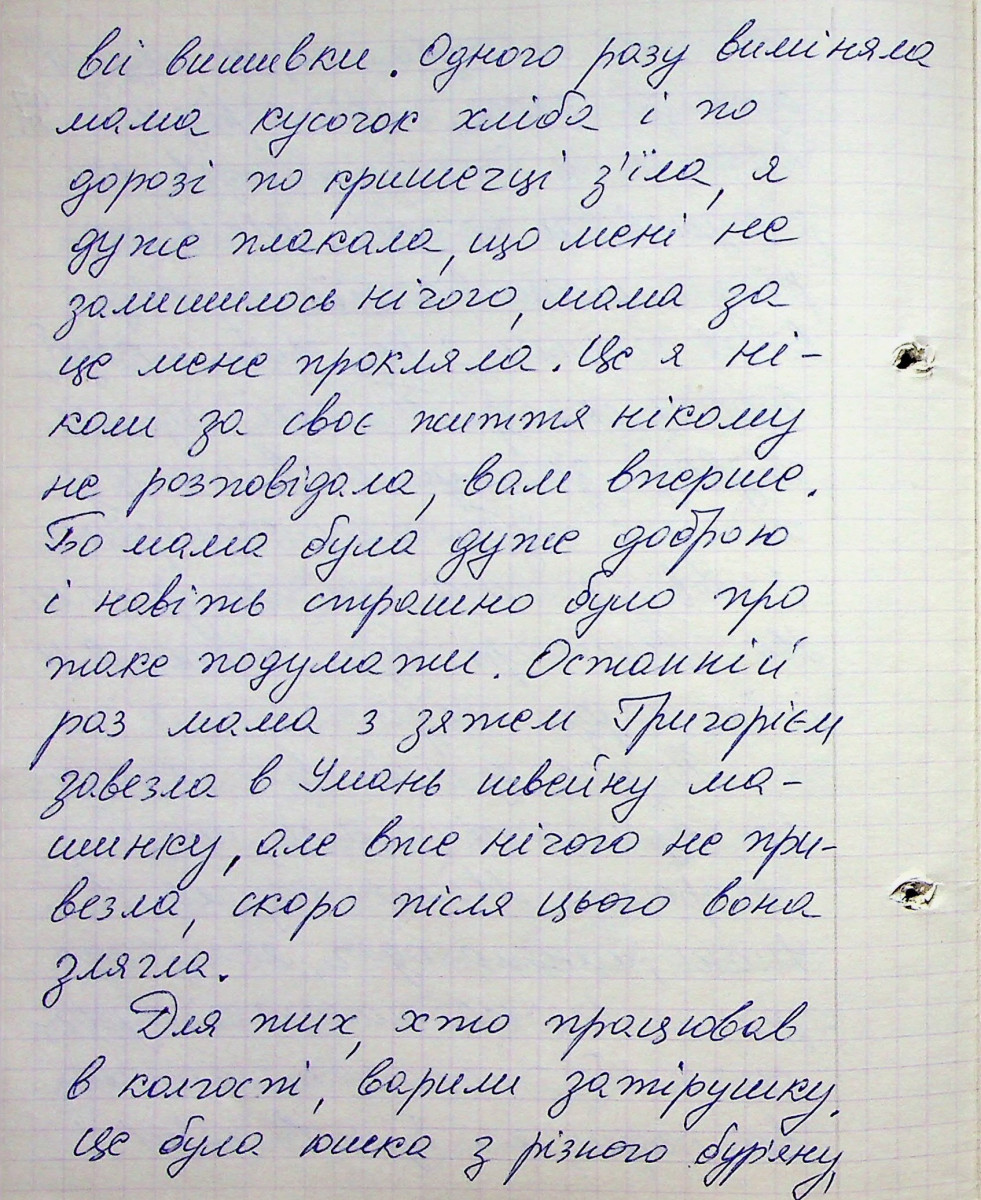 всі вишивки. Одного разу виміняла
мама кусочок хліба і по
дорозі по кришечці з'їла, я
дуже плакала, що мені не
залишилось нічого, мама за
це мене прокляла. Це я ні-
коли за своє життя нікому
не розповідала, вам вперше.
Бо мама була дуже доброю
і навіть страшно було про
таке подумати. Останній
раз мама з зятем Григорієм
завезла в Умань швейну ма-
шинку, але вже нічого не при-
везла, скоро після цього вона
злягла.
Для тих, хто працював
в колгоспі, варили затірушку.
Це була юшка з різного бур'яну,